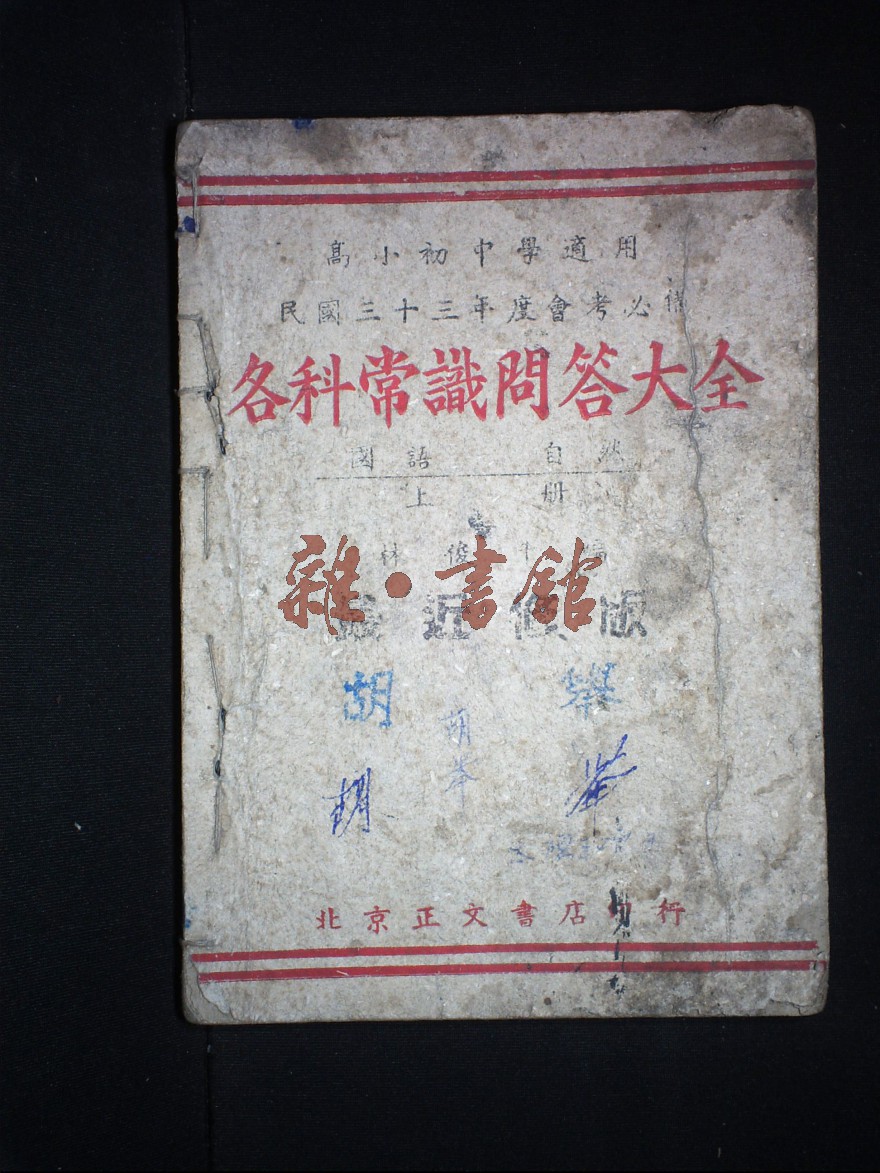 高小初中學適用
民國三十三年度會考必備
各科常識問答大全
國語 自然
上 册
林俊 編
雜·書館
最近修版
胡 舉
胡
胡
北京正文書店印行